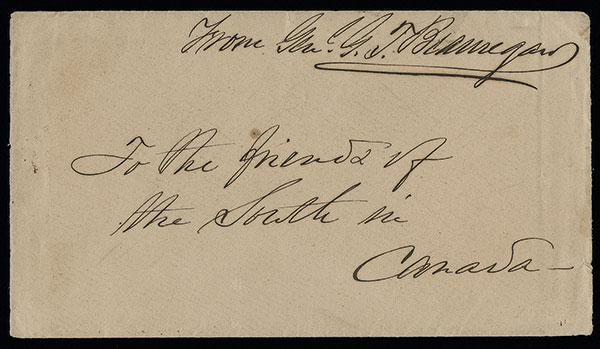 From Gen. G. T. Beauregard
To the friends of
the South in
Canada—